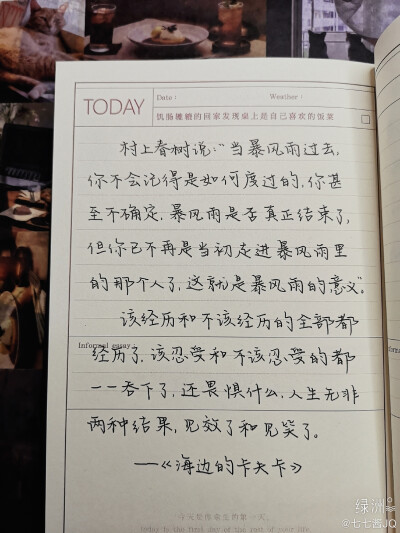 TODAY
Date :
Weather :
饥肠辘辘的回家发现桌上是自己喜欢的饭菜
村上春树说:“当暴风雨过去,
你不会记得是如何度过的,你甚
至不确定,暴风雨是否真正结束了,
但你已不再是当初走进暴风雨里
的那个人了,这就是暴风雨的意义”。
该经历和不该经历的全部都
Informal essay
经历了,该忍受和不该忍受的都
一一吞下了,还畏惧什么,人生无非
两种结果,见效了和见笑了。
—《海边的卡夫卡》
今天是你余生的第一天。
Today is the first day of the rest of your life
绿洲
@七七酱JQ